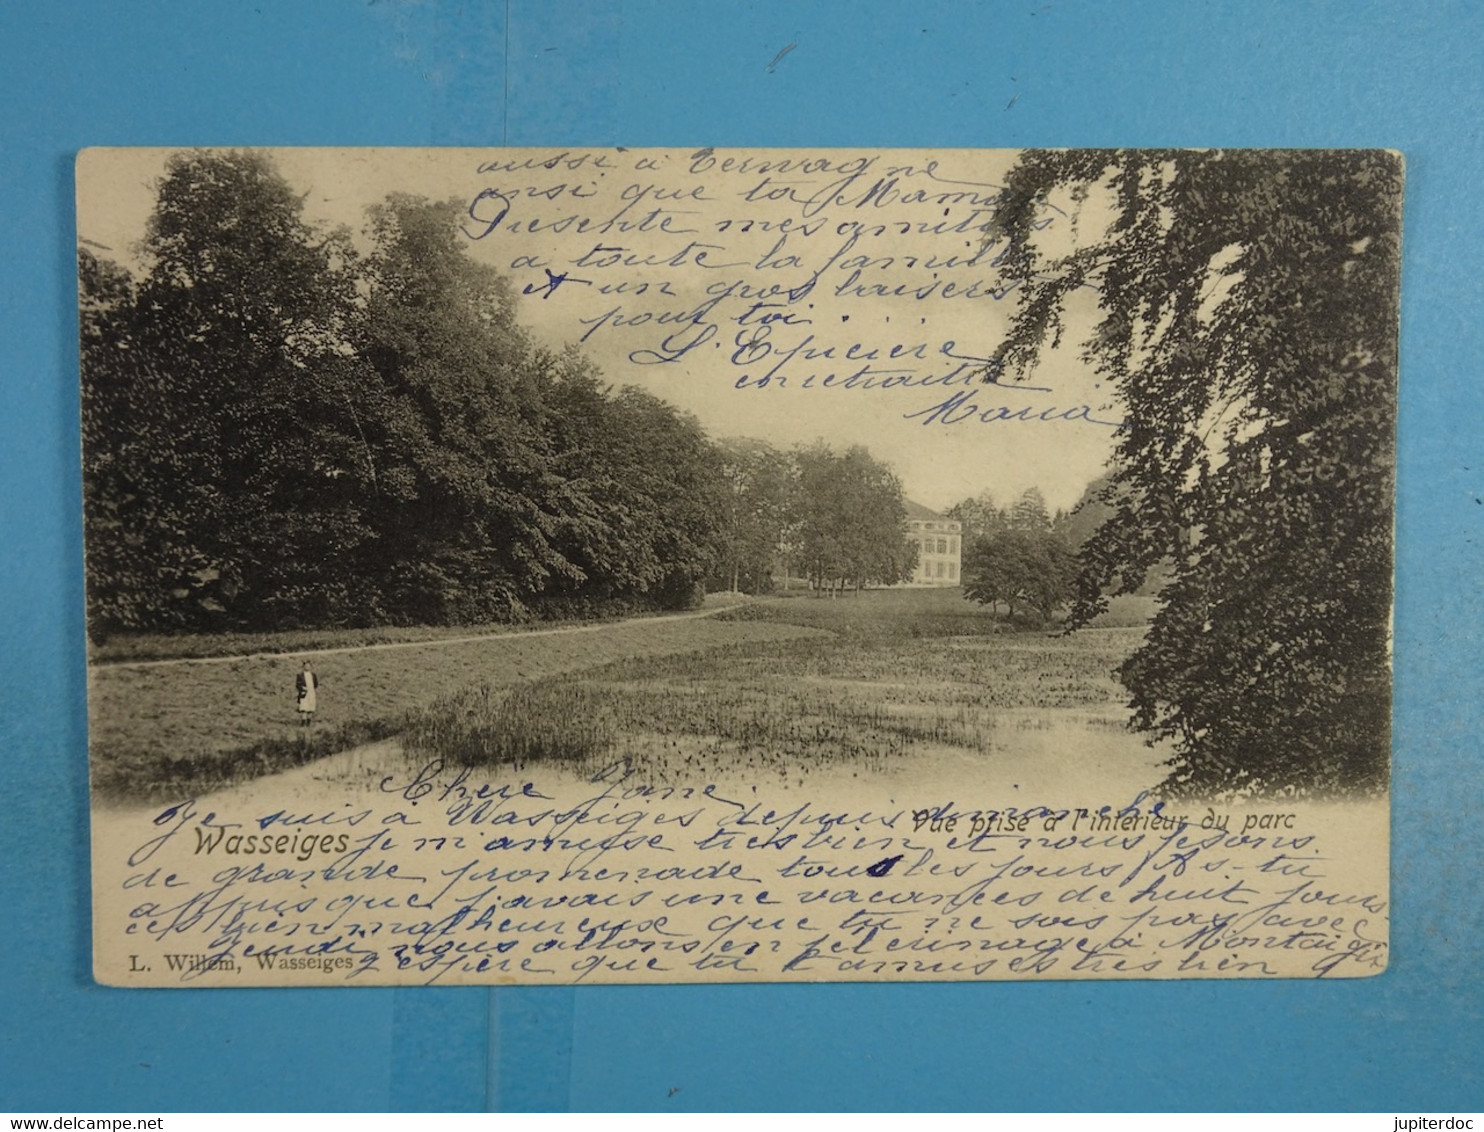 Chère Jane
Je suis à Wasseiges depuis dimanche
je m'amuse tres bien et nous fesons
de grande promenade tous les jours As-tu
appris que j'avais une vacances de huit jours
c'est bien malheureuse que tu ne sois pas avec
Jeudi nous allons en pelerinage à Montaigu
J'espère que tu t'amuses tres bien
aussi à Tervagne
ansi que ta Maman
Presente mes amitiés
a toute la famille
et un gros baisers
pour toi.
L'Epicière
en retraite
Maria
Wasseiges
Vue prise à l'intérieur du parc
L. Willem, Wasseiges
jupiterdoc
delcampe.net